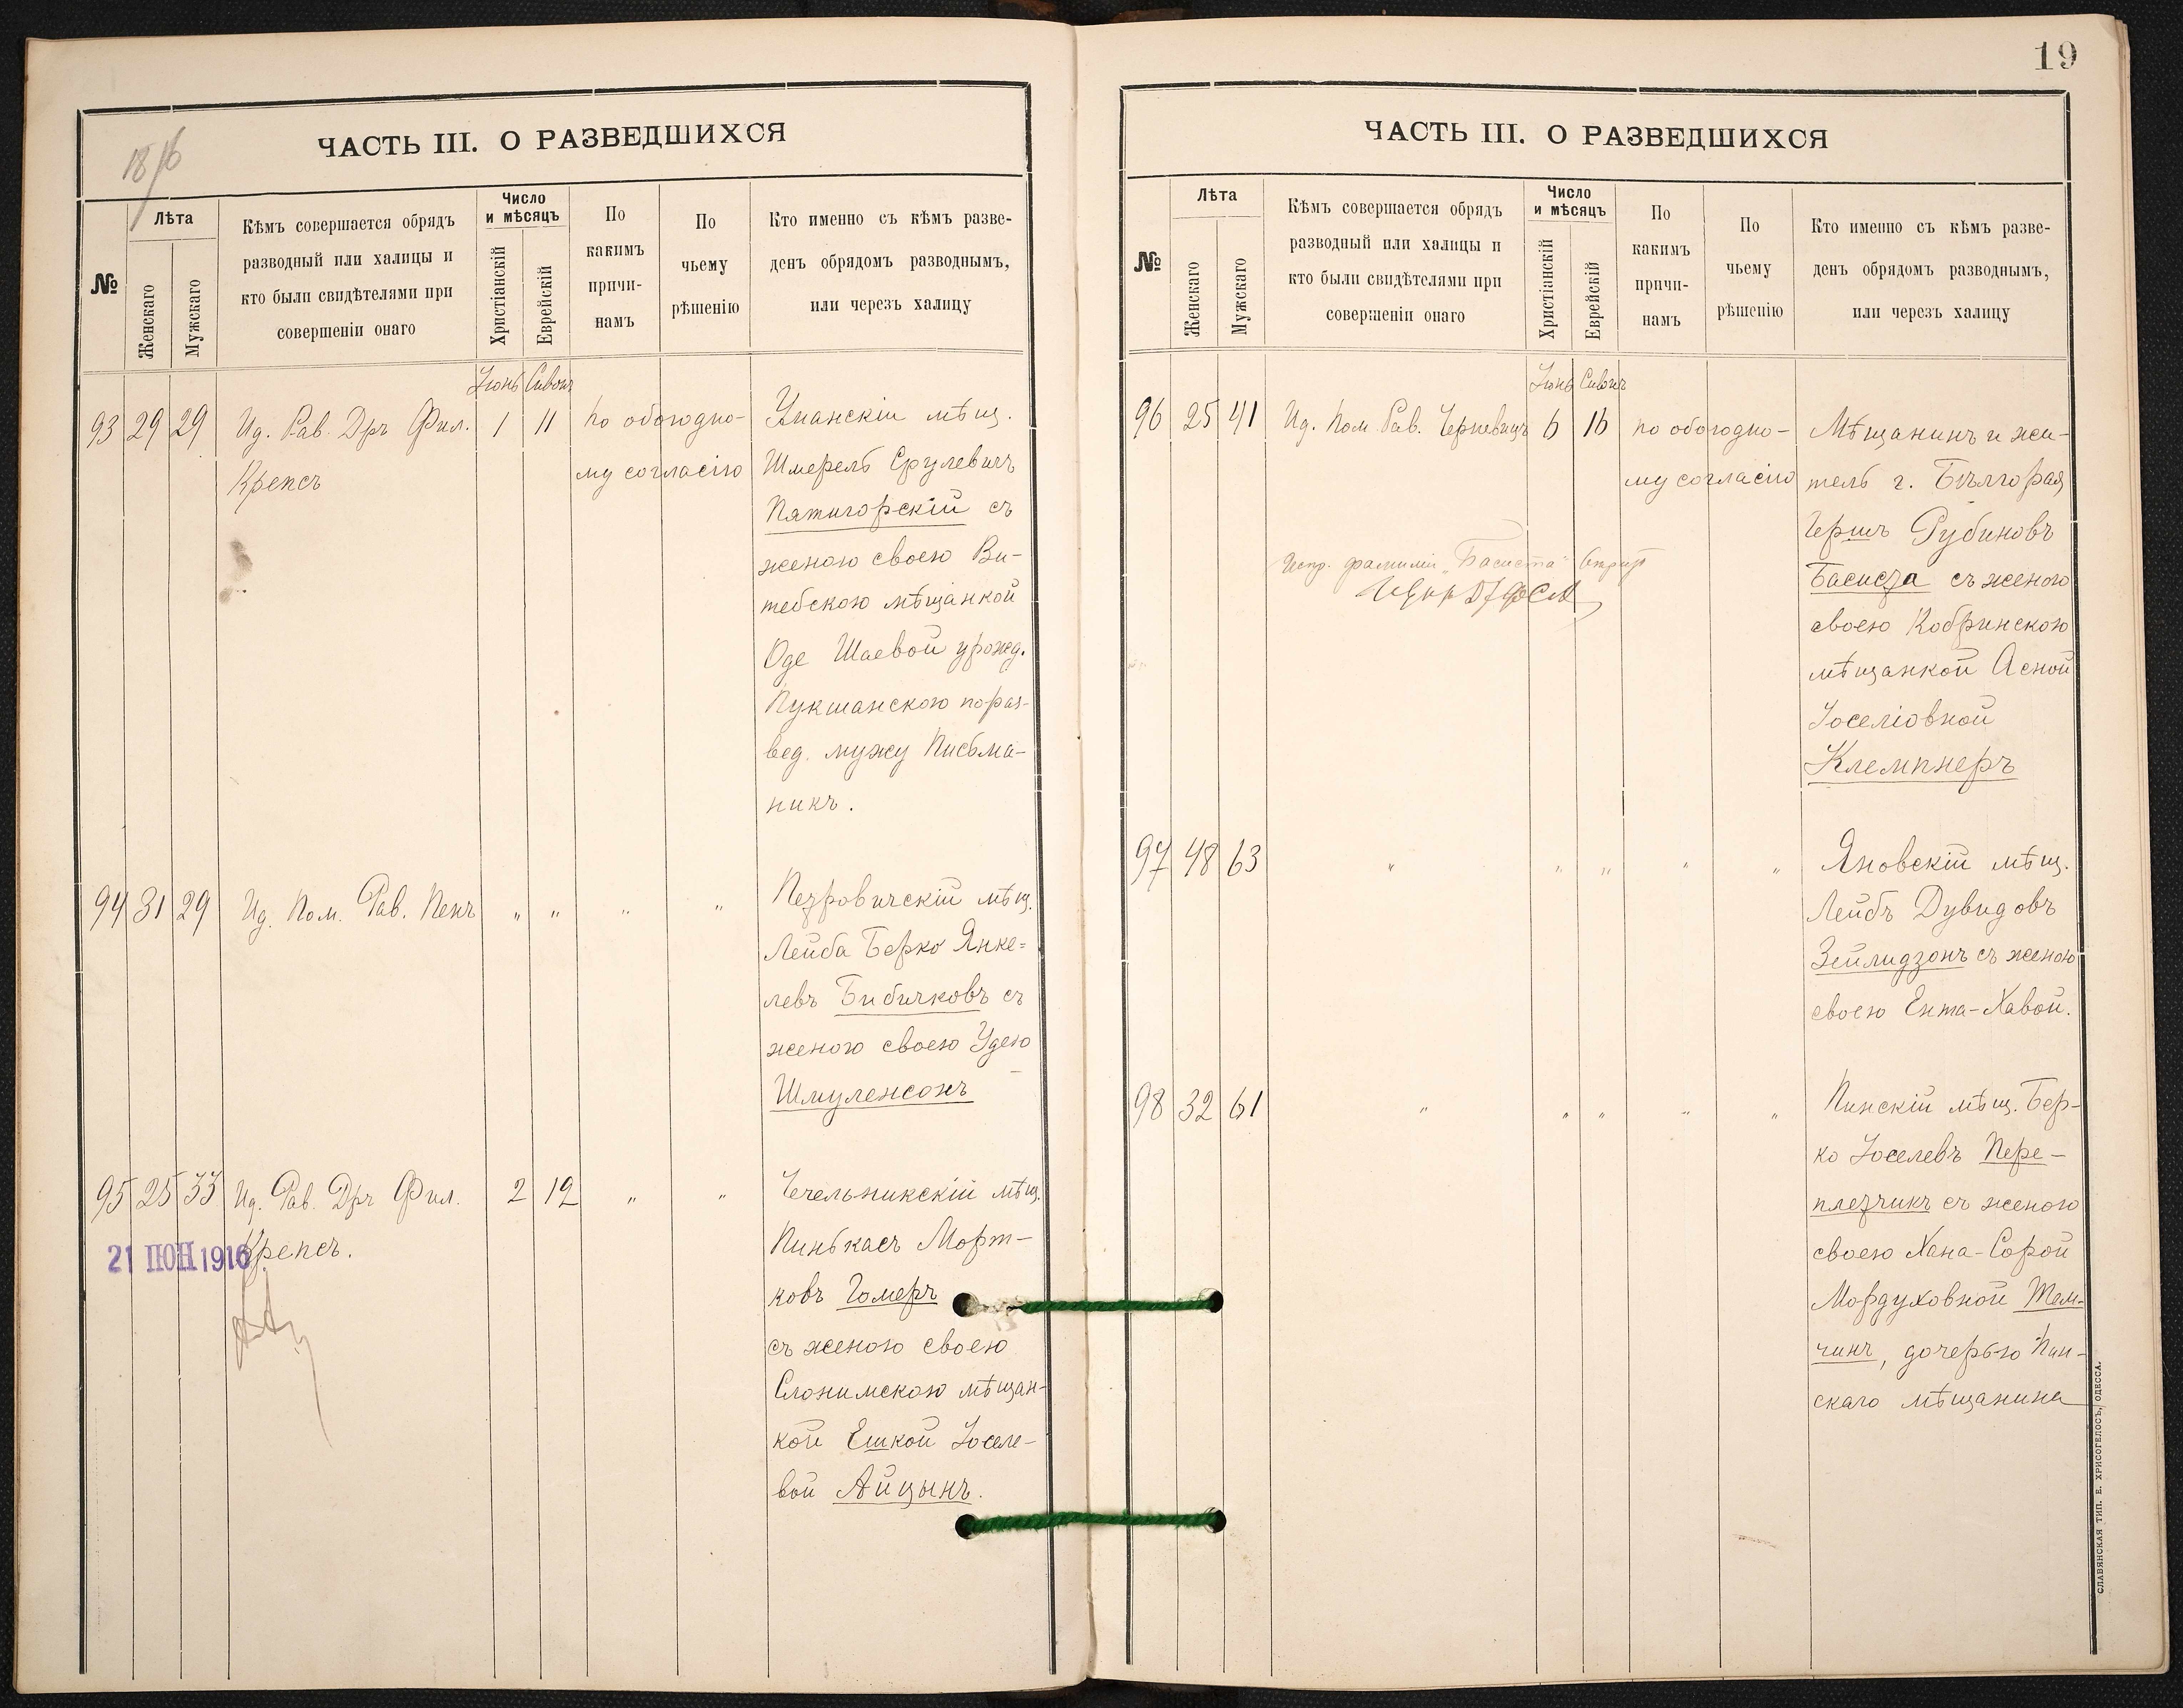 19
18/6
ЧАСТЬ III. О РАЗВЕДШИХСЯ
№
Лѣта
Женскаго
Мужскаго
Кѣмъ совершается обрядъ
разводный или халицы и
кто были свидѣтелями при
совершеніи онаго
Число
и мѣсяцъ
Христіанскій
Еврейскій
По
какимъ
причи-
намъ
По
чьему
рѣшенію
Кто именно съ кѣмъ разве-
денъ обрядомъ разводнымъ,
или черезъ халицу
Іюнь Сивонъ
93 29 29 Ид. Рав. Дръ Фил. 1 11 по обоюдно- Уманскій мѣщ.
Крепсъ му согласію Шмерель Срулевичъ
Пятигорскій съ
женою своею Ви-
тебскою мѣщанкой
Оде Шаевой урожд.
Пукшанскою по раз-
вед. мужу Письма-
никъ.
94 31 29 Ид. Пом. Рав. Пенъ " " " " Петровичскій мѣщ.
Лейба Берко Янке-
левъ Бибичковъ съ
женою своею Удею
Шмуленсонъ
95 25 33 Ид. Рав. Дръ Фил. 2 12 " " Чечельникскій мѣщ.
Крепсъ. Пинькасъ Морт-
21 ІЮН 1916
ковъ Гомеръ
съ женою своею
Слонимскою мѣщан-
кой Ешкой Іоселе-
вой Айцынъ.
ЧАСТЬ III. О РАЗВЕДШИХСЯ
№
Лѣта
Женскаго
Мужскаго
Кѣмъ совершается обрядъ
разводный или халицы и
кто были свидѣтелями при
совершеніи онаго
Число
и мѣсяцъ
Христіанскій
Еврейскій
По
какимъ
причи-
намъ
По
чьему
рѣшенію
Кто именно съ кѣмъ разве-
денъ обрядомъ разводнымъ,
или черезъ халицу
Іюнь Сивонъ
96 25 41 Ид. Пом. Рав. Черневицъ 6 16 по обоюдно- Мѣщанинъ и жи-
му согласію тель г. Бѣлгорая
Гершъ Рубиновъ
Испр. фамиліи „Басиста"
Басиста съ женою
своею Кобринскою
мѣщанкой Асной
Іоселіовной
Клемпнеръ
97 48 63 " " " " " Яновскій мѣщ.
Лейбъ Дувидовъ
Зейлидзонъ съ женою
своею Ента-Хавой.
98 32 61 " " " " " Пинскій мѣщ. Бер-
ко Іоселевъ Пере-
плетчикъ съ женою
своею Хана-Сорой
Мордуховной Тем-
чинъ, дочерью Пин-
скаго мѣщанина
СЛАВЯНСКАЯ ТИП. Е. ХРИСОГЕЛОСЪ, ОДЕССА.